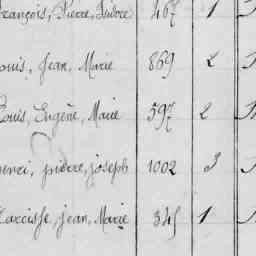 François, Pierre, 467 1
Louis, Jean, Marie 869 2
Louis, Eugène, Marie 597 2
Henri, pierre, joseph 1002 3
Narcisse, jean, Marie 345 1